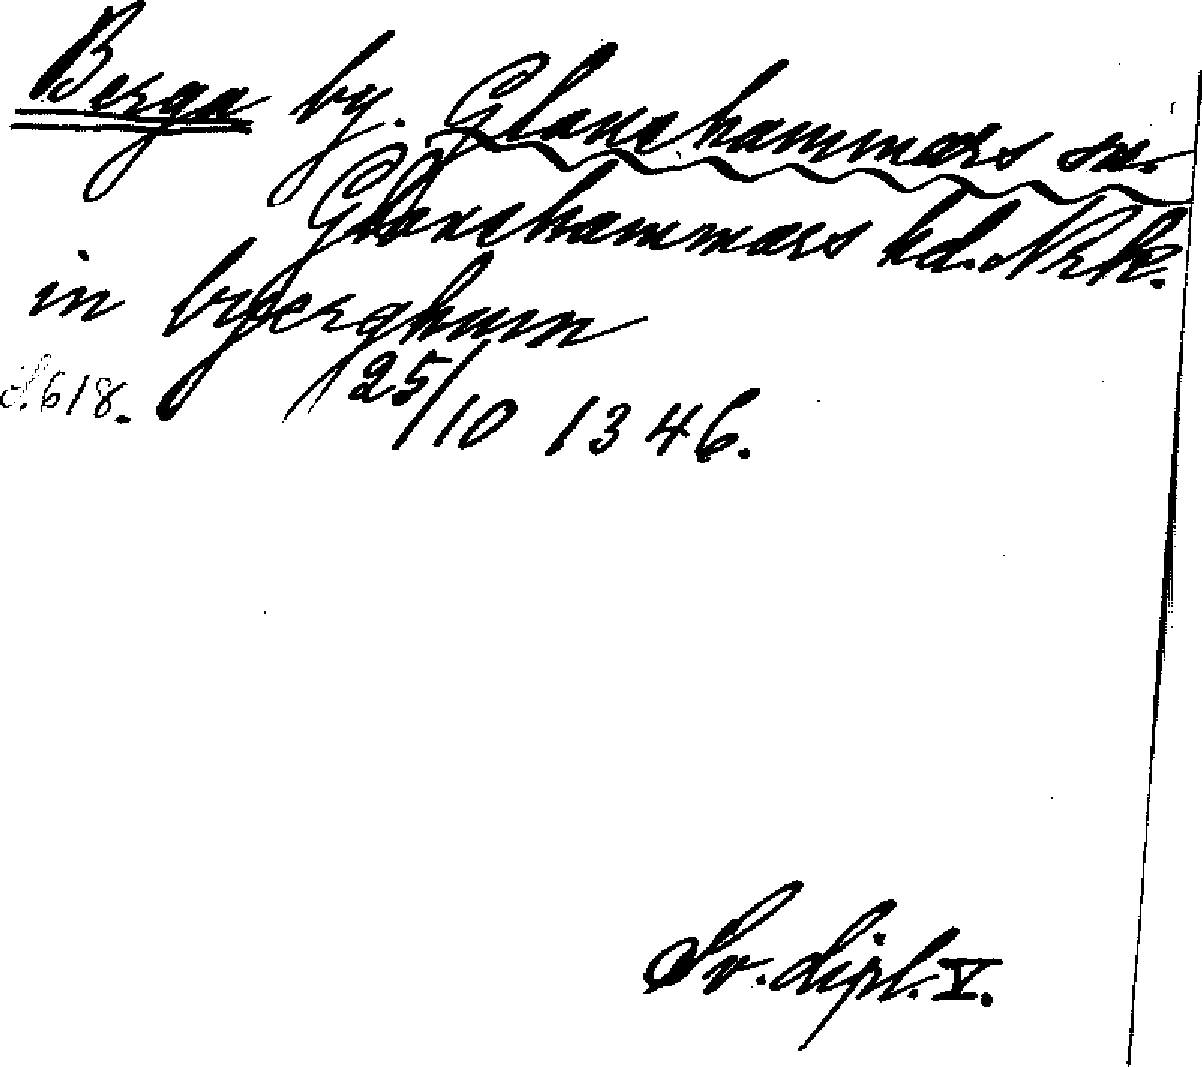 Berga by. Glanshammars sn.
Glanshammars hd. Nrk.
in byerghum
S. 618. 25/10 1346.
Sv. dipl. V.